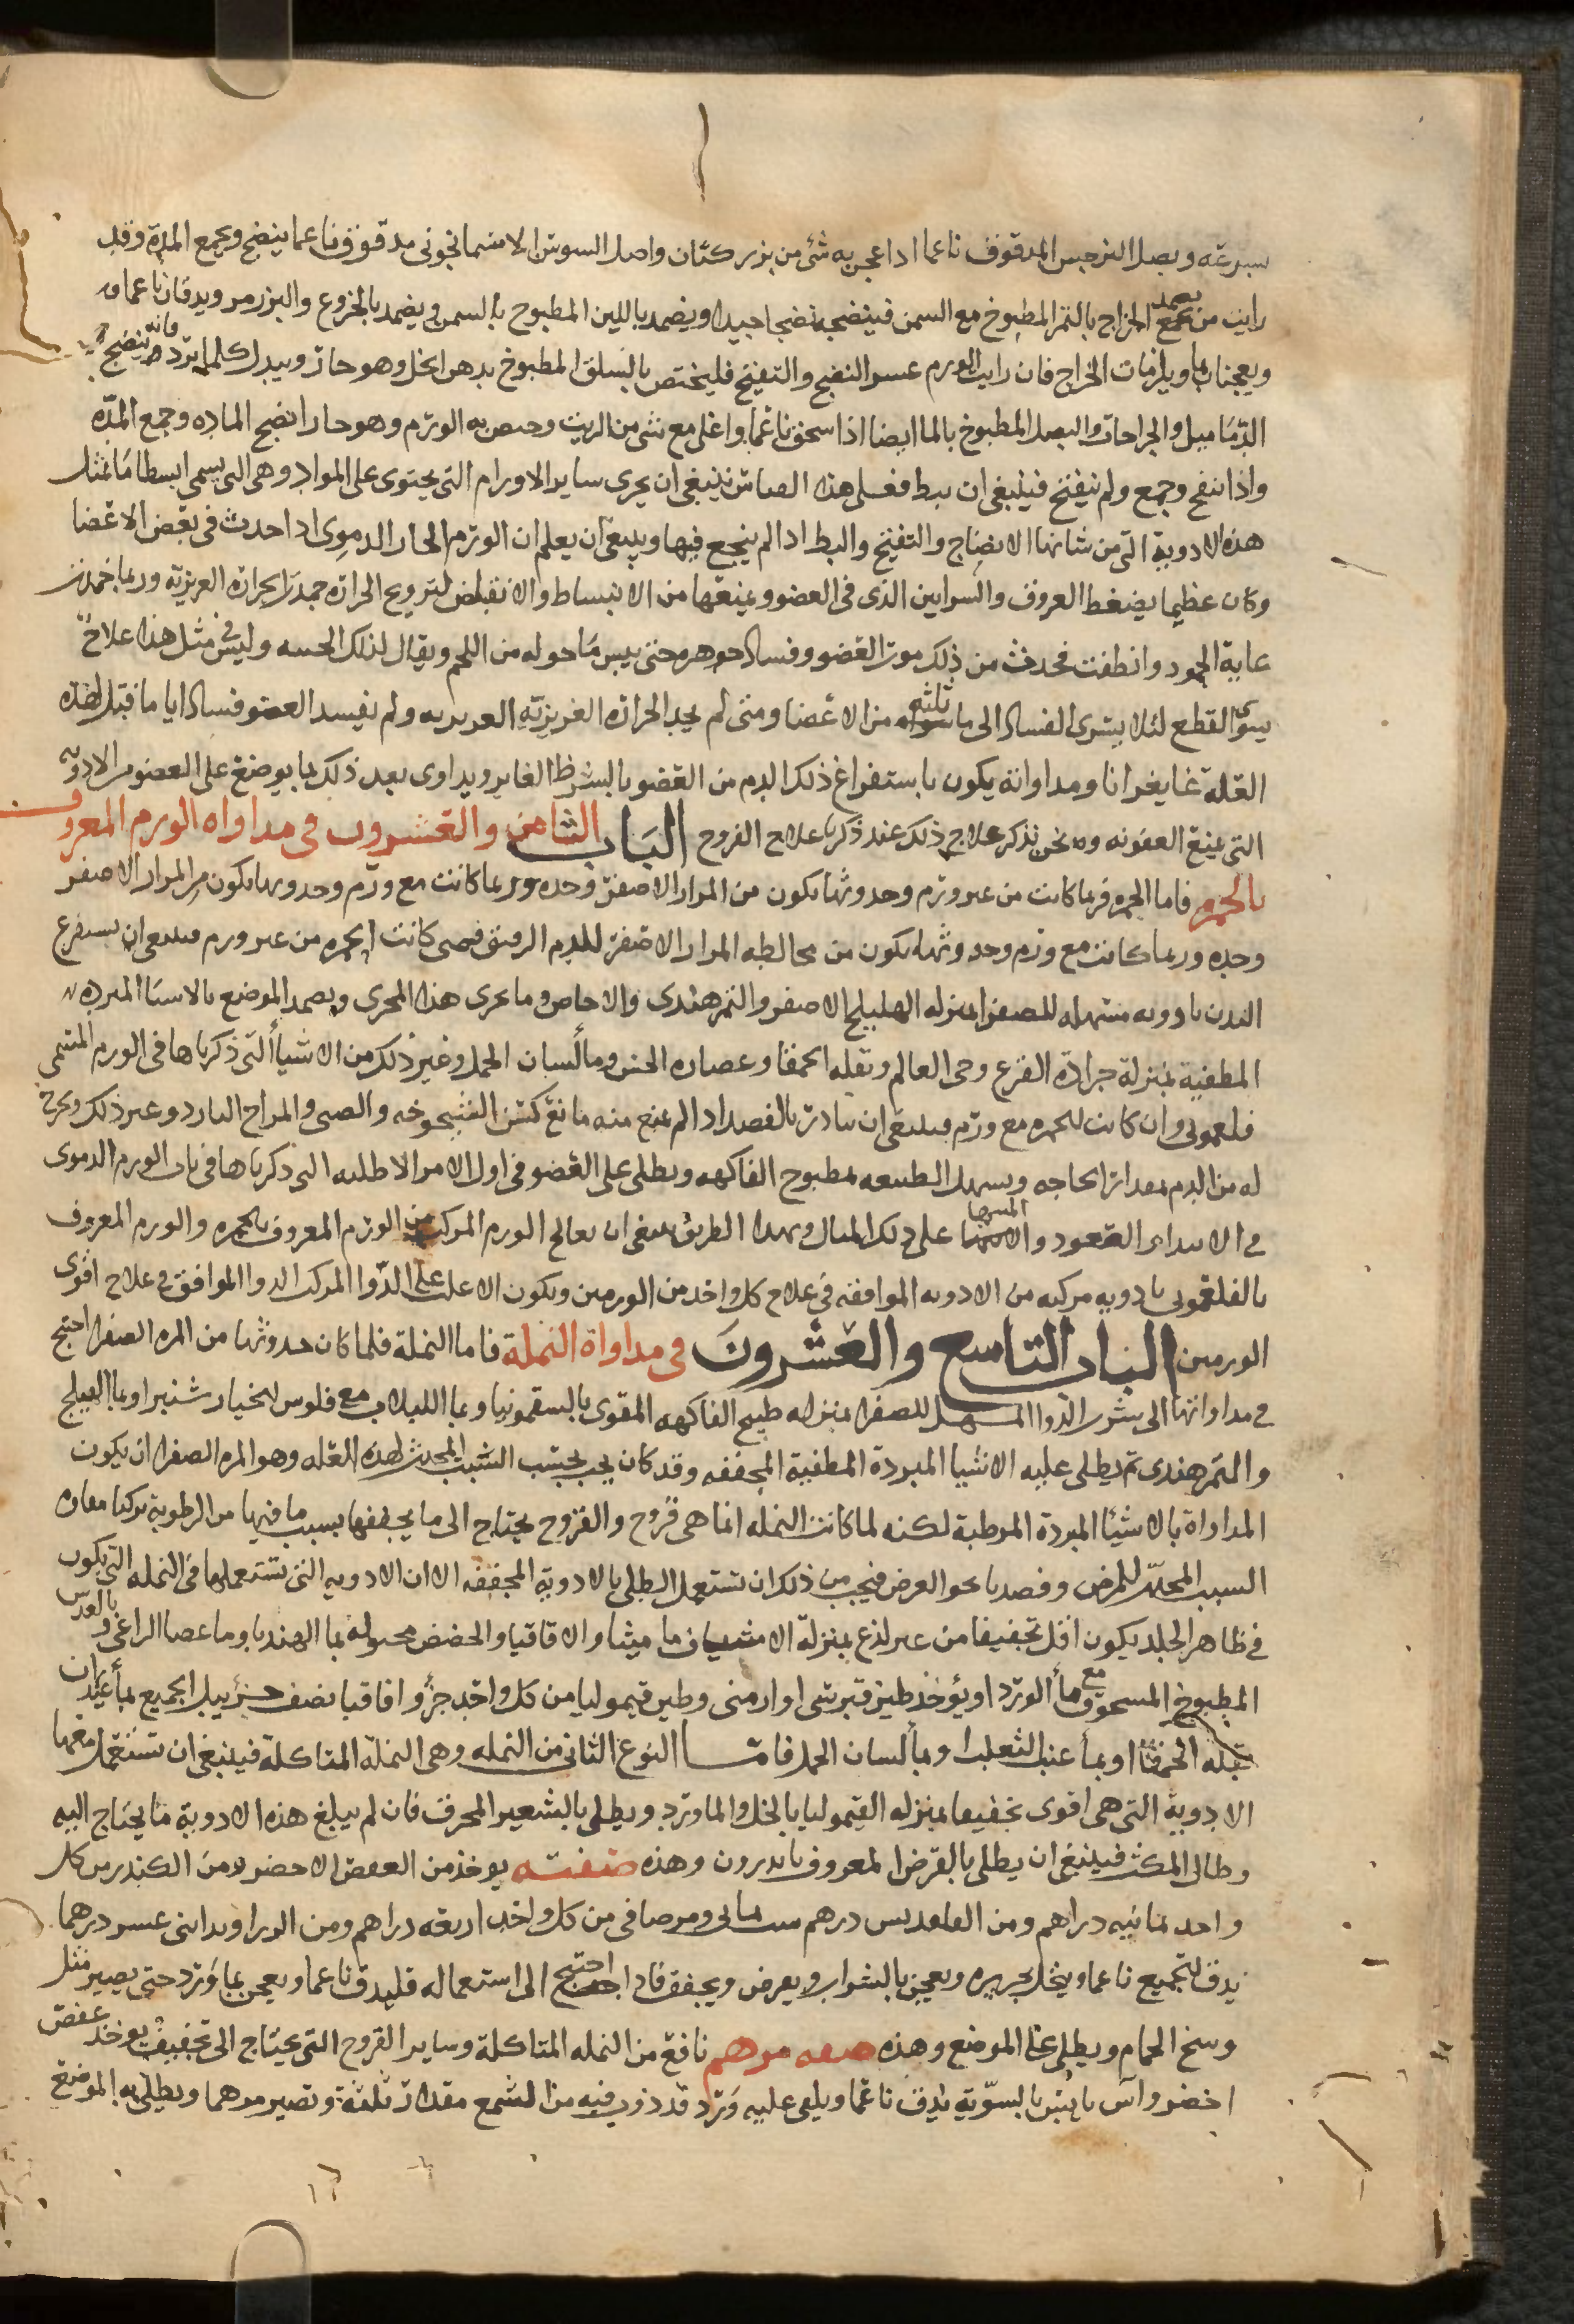 بسرعة وبصل النرجس المدقوق ناعما اذا عجن به شئ من بزر كتان واصل السوسن الاسمانجوني مدقوق ناعما ينضج ويجمع المدة وقد
رايت من يضمد الخراج بالتمر المطبوخ مع السمن فينضجه نضجا جيدا ويضمد باللبن المطبوخ بالسمن ويضمد بالخروع والبزرمر ويدقان ناعما
ويعجنان بما ويلزمان الخراج فان رايت الورم عسر النضج والتفتح فليختص بالسلق المطبوخ بدهن الخل وهو حار ويبدل كلما برد فانه ينضج
الدماميل والجراحات والبصل المطبوخ بالما ايضا اذا سحق ناعما واغلى مع شئ من الزيت وخص به الورم وهو حار انضج الماده وجمع المدّه
واذا نضج وجمع ولم ينفتح فينبغي ان يبط فعلى هذا القياس ينبغي ان يجرى ساير الاورام التي يحتوى على المواد وهي التي يسمى ابسطاما بمثل
هذه الادوية التي من شانها الانضاج والتفتيح والبط اذا لم ينجع فيها وينبغي ان يعلم ان الورم الحار الدموى اذا حدث في بعض الاعضا
وكان عظيما يضغط العروق والشرايين الذى في العضو ويمنعها من الانبساط والانقباض لترويح الحرارة جمدت الحرارة الغريزية وربما خمدت
غاية الجمود وانطفت فحدث من ذلك موت العضو وفساد جوهره حتى ييبس ما حوله من اللحم ويقال لذلك الحسه وليس في مثل هذا علاج
سوى القطع لئلا يسرى الفساد الى ما يليه من الاعضا ومتى لم يجد الحرارة الغريزية ولم يفسد العضو فسادا ياما قيل لهذه
العلة غانغرانا ومداواته يكون باستفراغ ذلك الدم من العضو بالشرط الغاير ويداوى بعد ذلك بما يوضع على العضو من الادوية
التي يمنع العفونه ونحن نذكر علاج ذلك عند ذكرنا علاج القروح الباب الثامن والعشرون في مداواه الورم المعروف
بالحمره فاما الحمره فربما كانت من غير ورم وحدوثها يكون من المرار الاصفر وحده وربما كانت مع ورم وحدوثها يكون من المرار الاصفر
وحده وربما كانت مع ورم وحدوثها يكون من مخالطه المرار الاصفر للدم الرقيق فمتى كانت الحمره من غير ورم فينبغي ان يستفرغ
البدن بادويه مسهله للصفرا بمنزله الهليلج الاصفر والتمر هندى والاجاص وما يجرى هذا المجرى ويضمد الموضع بالاشيا المبرده
المطفية بمنزلة جرادة القرع وحى العالم وبقله الحمقا وعصاره الخس وما لسان الحمل وغير ذلك من الاشيا التي ذكرناها في الورم المسمى
فلغمونى وان كانت الحمره مع ورم فينبغي ان يبادر بالفصد اذا لم يمنع منه مانع كسن الشيخوخه والصبى والمزاج البارد وغير ذلك ويخرج
له من الدم بمقدار الحاجه ويسهل الطبيعه بمطبوخ الفاكهه ويطلى على العضو في اول الامر الاطليه التي ذكرناها في باب الورم الدموى
في الابتداء والصعود والانتها على ذلك المثال وبهذا الطريق ينبغي ان يعالج الورم المركب من الورم المعروف بالحمره والورم المعروف
بالفلغمونى بادويه مركبه من الادويه الموافقه في علاج كل واحد من الورمين ويكون الاغلب على الدوا المركب الدوا الموافق في علاج اقوى
الورمين الباب التاسع والعشرون في مداواة النملة فاما النملة فلما كان حدوثها من المره الصفرا احتيج
في مداواتها الى شرب الدوا المسهل للصفرا بمنزله طبيخ الفاكهه المقوى بالسقمونيا وبما اللبلاب مع فلوس الخيار شنبر او بما الهليلج
والتمر هندى ثم يطلى عليه الاشيا المبردة المطفية المجففه وقد كان يجب بحسب السبب المحدث لهذه العله وهو المره الصفرا ان يكون
المداواة بالاشيا المبردة المرطبة لكنه لما كانت النمله انما هي قروح والقروح يحتاج الى ما يجففها بسبب ما فيها من الرطوبة تركنا معاده
السبب المحدث للمرض وقصدنا نحو العرض فيجب من ذلك ان تستعمل الطلى بالادوية المجففه الا ان الادويه التي تستعملها في النمله التي يكون
في ظاهر الجلد يكون اقل تجفيفا من غير لذع بمنزلة الاشياف ماميثا والاقاقيا والحضض محوله بما الهندبا وما عصا الراعي وبالعدس
المطبوخ المسحوق مع ما الورد او يؤخذ طين قبرسى او ارمنى وطين قيموليا من كل واحد جزؤ اقاقيا نصف جزؤ يبل الجميع بما
بقله الحمقا او بما عنب الثعلب او بما لسان الحمل فاما النوع الثانى من النمله وهي النملة المتاكلة فينبغي ان تستعمل معها
الادوية التي هي اقوى تجفيفا بمنزله القيموليا بالخل والماورد ويطلى بالشعير المحرق فان لم يبلغ هذه الادوية ما يحتاج اليه
وطال المكث فينبغي ان يطلى بالقرض المعروف باندرون وهذه صفته يوخذ من العفص الاخضر ومن الكندر من كل
واحد ثمانيه دراهم ومن القلقديس درهم شب يمانى ومر صافى من كل واحد اربعه دراهم ومن الزراوند اثنى عشر درهما
يدق الجميع ناعما وينخل بحريره ويعجن بالشراب ويعرض ويجفف فاذا احتيج الى استعماله فليدق ناعما ويعجن بماورد حتى يصير مثل
وسخ الحمام ويطلى على الموضع وهذه صفه مرهم نافع من النمله المتاكلة وساير القروح التي يحتاج الى تجفيف يوخذ عفص
اخضر واس يابس بالسوية يدق ناعما ويلقى عليه ورد قد ذوب فيه من الشمع مقدار ثلثة وتصير مرهما ويطلى به الموضع